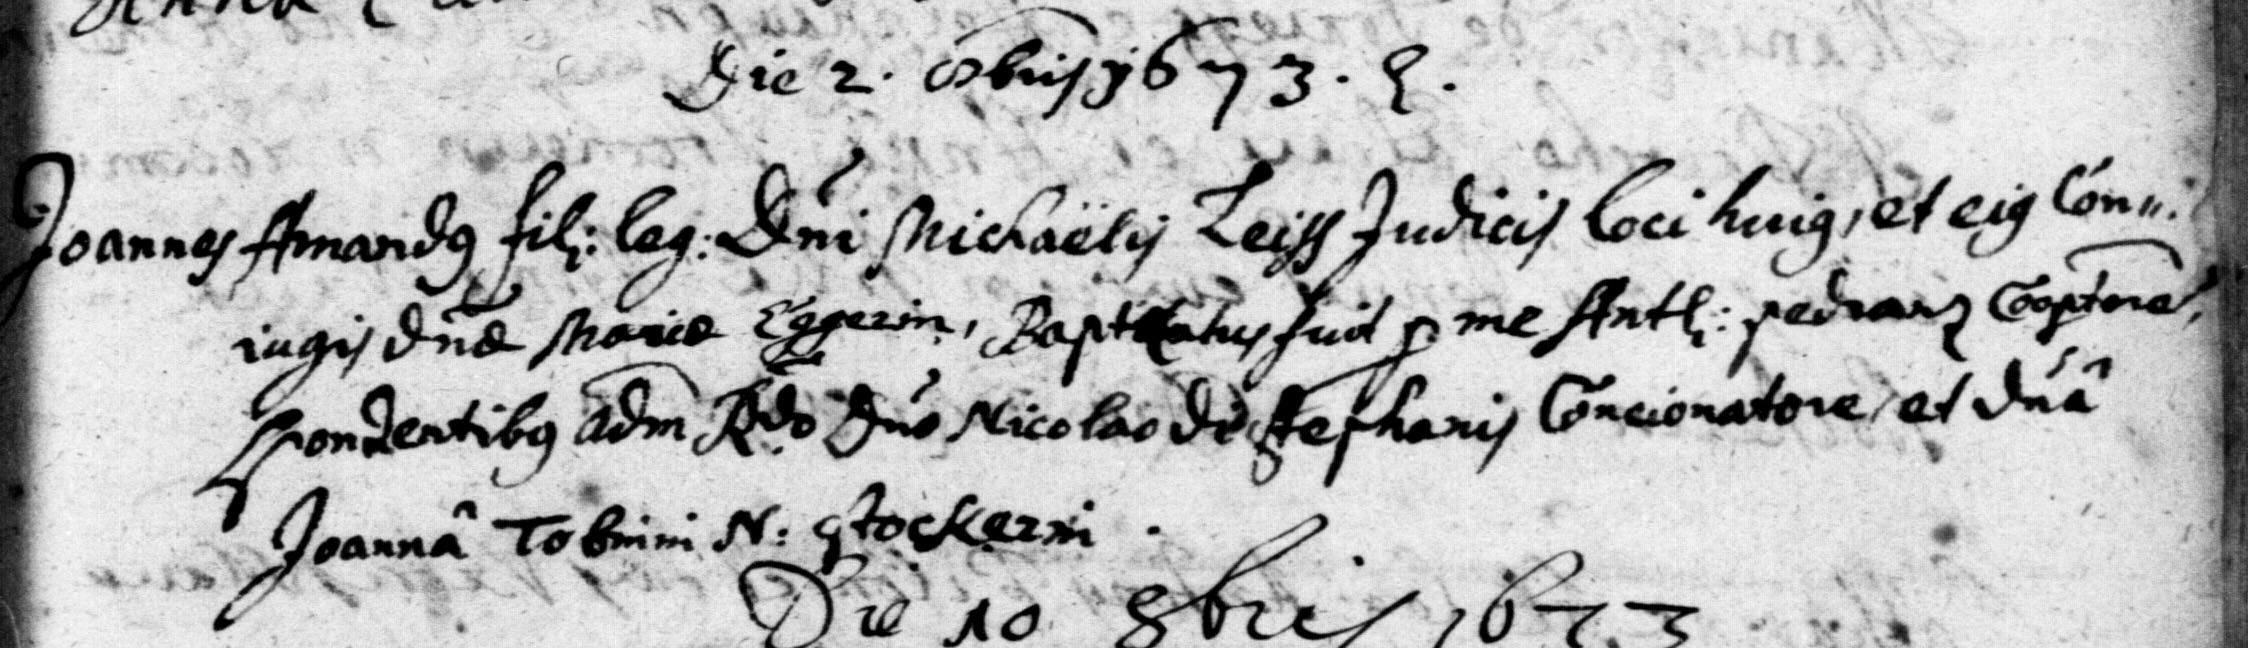 Die 2. 8bris 1673. L.
Joannes Amandus fil: leg: Dni Michaëlis Zeiss Judicis loci huius, et eius Con„
iugis Dnae Mariae Eggerin, Baptizatus fuit p me Anth: pedranz Cooptore,
spondentibus adm Rdo Dno Nicolao de Stephanis Concionatore, et Dnâ
Joannâ Tobmini N: Stockerni
Die 10 8bris 1673